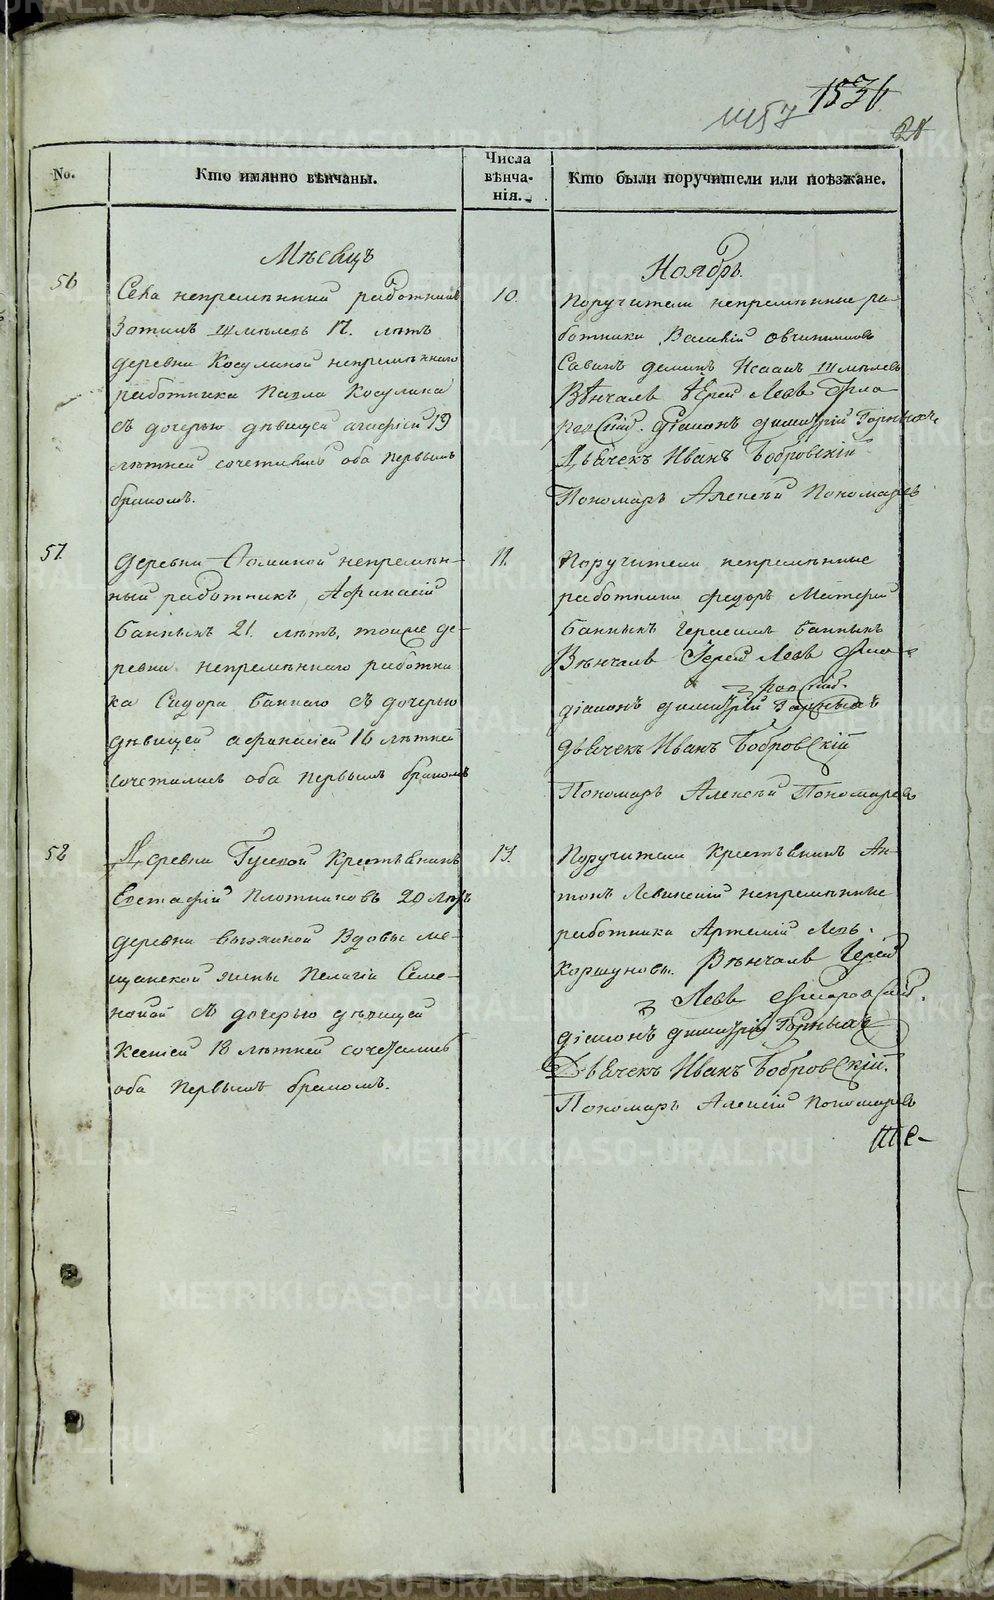 1536
1157
28
No.
Кто имянно вѣнчаны.
Числа
вѣнча-
нія.
Кто были поручители или поѣзжане.
Мѣсяцъ
Ноябрь.
56
Села непремѣнный работникъ
Зотикъ Шмѣлевъ 17. лѣтъ
деревни Косулиной непремѣннаго
работника Павла Косулина
съ дочерью дѣвицей Агафіей 19
лѣтней сочетались оба первымъ
бракомъ.
10.
Поручители непремѣнные ра-
ботники Василій Овчинниковъ
Исаакъ Шмѣлевъ
Вѣнчалъ Іерей Левъ
Діаконъ Димитрій Горныхъ
Дьячекъ Иванъ Бобровскій
Пономарь Алексѣй Пономаревъ
57.
деревни непремѣн-
ный работникъ Афанасій
Банныхъ 21. лѣтъ, тоиже де-
ревни непремѣннаго работни
ка Сидора Баннаго съ дочерью
дѣвицей Афанасіей 16 лѣтней
сочетались оба первымъ бракомъ
11.
Поручители непремѣнные
работники Федоръ Матфей
Банныхъ Герасимъ Банныхъ
Вѣнчалъ Іерей Левъ
діаконъ Димитрій Горныхъ
дьячекъ Иванъ Бобровскій
Пономарь Алексѣй Пономаревъ
58
Деревни Гусевой Крестьянинъ
Евстафій Плотниковъ 20 лѣтъ
деревни Вдовы ме-
щанской жены Пелагіи Семе-
новой съ дочерью дѣвицей
Ксеніей 18 лѣтней сочетались
оба первымъ бракомъ.
13.
Поручители Крестьянинъ Ан-
тонъ Левинскій непремѣнные
работники Артемій Левъ
Коршуновы. Вѣнчалъ Іерей
Левъ
діаконъ Димитрій Горныхъ
Дьячекъ Иванъ Бобровскій.
Пономарь Алексій Пономаревъ
METRIKI.GASO-URAL.RU